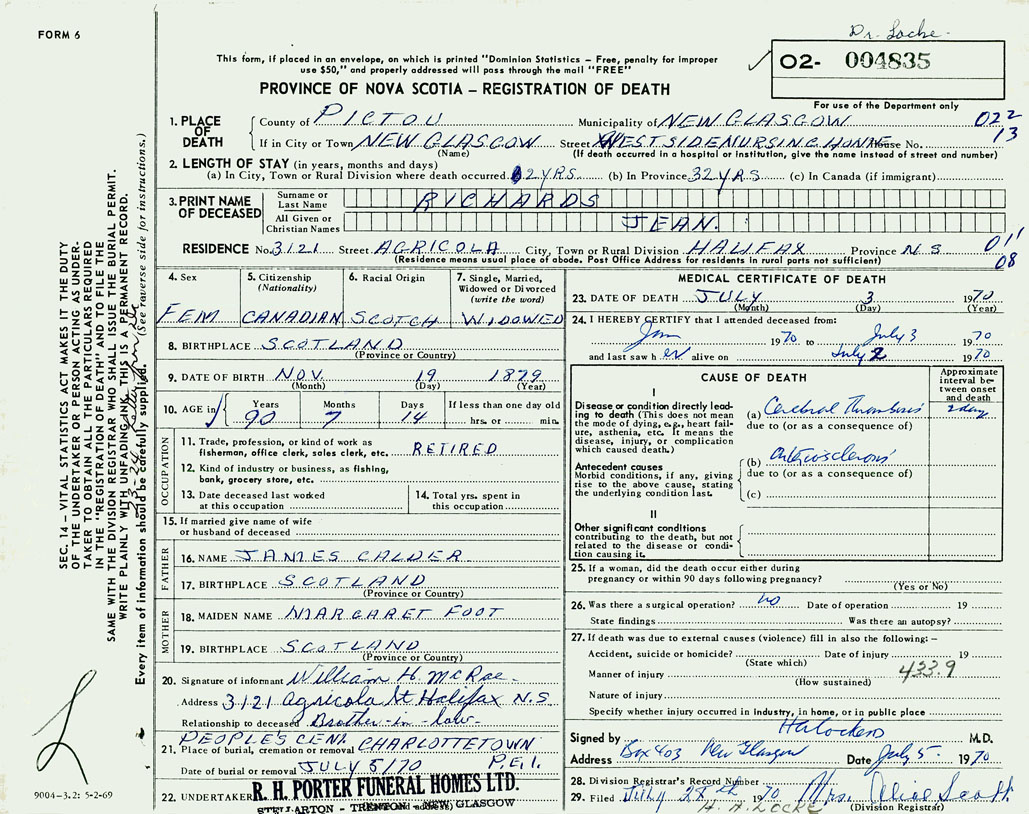 FORM 6
Dr. Locke.
This form, if placed in an envelope, on which is printed "Dominion Statistics – Free, penalty for improper
use $50," and properly addressed will pass through the mail "FREE"
O2- 004835
PROVINCE OF NOVA SCOTIA – REGISTRATION OF DEATH
For use of the Department only
1. PLACE OF DEATH
County of PICTOU Municipality of NEW GLASGOW 022
If in City or Town NEW GLASGOW Street WEST SIDE NURSING HOME House No. 13
(Name) (If death occurred in a hospital or institution, give the name instead of street and number)
2. LENGTH OF STAY (in years, months and days)
(a) In City, Town or Rural Division where death occurred 2 YRS. (b) In Province 32 YRS (c) In Canada (if immigrant)
3. PRINT NAME OF DECEASED
Surname or Last Name RICHARDS
All Given or Christian Names JEAN.
RESIDENCE No. 3121 Street AGRICOLA City, Town or Rural Division HALIFAX Province N S 011
(Residence means usual place of abode. Post Office Address for residents in rural parts not sufficient) 08
4. Sex
FEM
5. Citizenship
(Nationality)
CANADIAN
6. Racial Origin
SCOTCH
7. Single, Married,
Widowed or Divorced
(write the word)
WIDOWED
8. BIRTHPLACE SCOTLAND
(Province or Country)
9. DATE OF BIRTH NOV. 19 1879
(Month) (Day) (Year)
10. AGE in Years Months Days If less than one day old
90 7 14 hrs. or min.
OCCUPATION
11. Trade, profession, or kind of work as
fisherman, office clerk, sales clerk, etc. RETIRED
12. Kind of industry or business, as fishing,
bank, grocery store, etc.
13. Date deceased last worked
at this occupation
14. Total yrs. spent in
this occupation
15. If married give name of wife
or husband of deceased
FATHER
16. NAME JAMES CALDER
17. BIRTHPLACE SCOTLAND
(Province or Country)
MOTHER
18. MAIDEN NAME MARGARET FOOT
19. BIRTHPLACE SCOTLAND
(Province or Country)
20. Signature of informant William H. McRae
Address 3121 Agricola St Halifax N.S
Relationship to deceased Brother-in-law
PEOPLE'S CEM. CHARLOTTETOWN
21. Place of burial, cremation or removal
P.E.I.
Date of burial or removal JULY 5/70
22. UNDERTAKER R. H. PORTER FUNERAL HOMES LTD.
STELLARTON - TRENTON - NEW GLASGOW
MEDICAL CERTIFICATE OF DEATH
23. DATE OF DEATH JULY 3 1970
(Month) (Day) (Year)
24. I HEREBY CERTIFY that I attended deceased from:
Jan 1970 to July 3 1970
and last saw her alive on July 2 1970
CAUSE OF DEATH
Approximate
interval be-
tween onset
and death
I
Disease or condition directly lead-
ing to death (This does not mean
the mode of dying, e.g., heart fail-
ure, asthenia, etc. It means the
disease, injury, or complication
which caused death.)
(a) Cerebral Thrombosis 2 day
due to (or as a consequence of)
Antecedent causes
Morbid conditions, if any, giving
rise to the above cause, stating
the underlying condition last.
(b) Arteriosclerosis
due to (or as a consequence of)
(c)
II
Other significant conditions
contributing to the death, but not
related to the disease or condi-
tion causing it.
25. If a woman, did the death occur either during
pregnancy or within 90 days following pregnancy?
(Yes or No)
26. Was there a surgical operation? no Date of operation 19
State findings Was there an autopsy?
27. If death was due to external causes (violence) fill in also the following: –
Accident, suicide or homicide? Date of injury 19
(State which)
Manner of injury 433.9
(How sustained)
Nature of injury
Specify whether injury occurred in industry, in home, or in public place
Signed by M.D.
Address Box 403 New Glasgow Date July 5 1970
28. Division Registrar's Record Number
29. Filed July 28th 1970 Mrs. Alice Scott
H. A. LOCKE (Division Registrar)
SEC. 14 – VITAL STATISTICS ACT MAKES IT THE DUTY
OF THE UNDERTAKER OR PERSON ACTING AS UNDER-
TAKER TO OBTAIN ALL THE PARTICULARS REQUIRED
IN THE "REGISTRATION OF DEATH" AND TO FILE THE
SAME WITH THE DIVISION REGISTRAR WHO SHALL ISSUE THE BURIAL PERMIT.
WRITE PLAINLY WITH UNFADING INK. THIS IS A PERMANENT RECORD.
Every item of information should be carefully supplied. (See reverse side for instructions.)
9004-3.2: 5-2-69